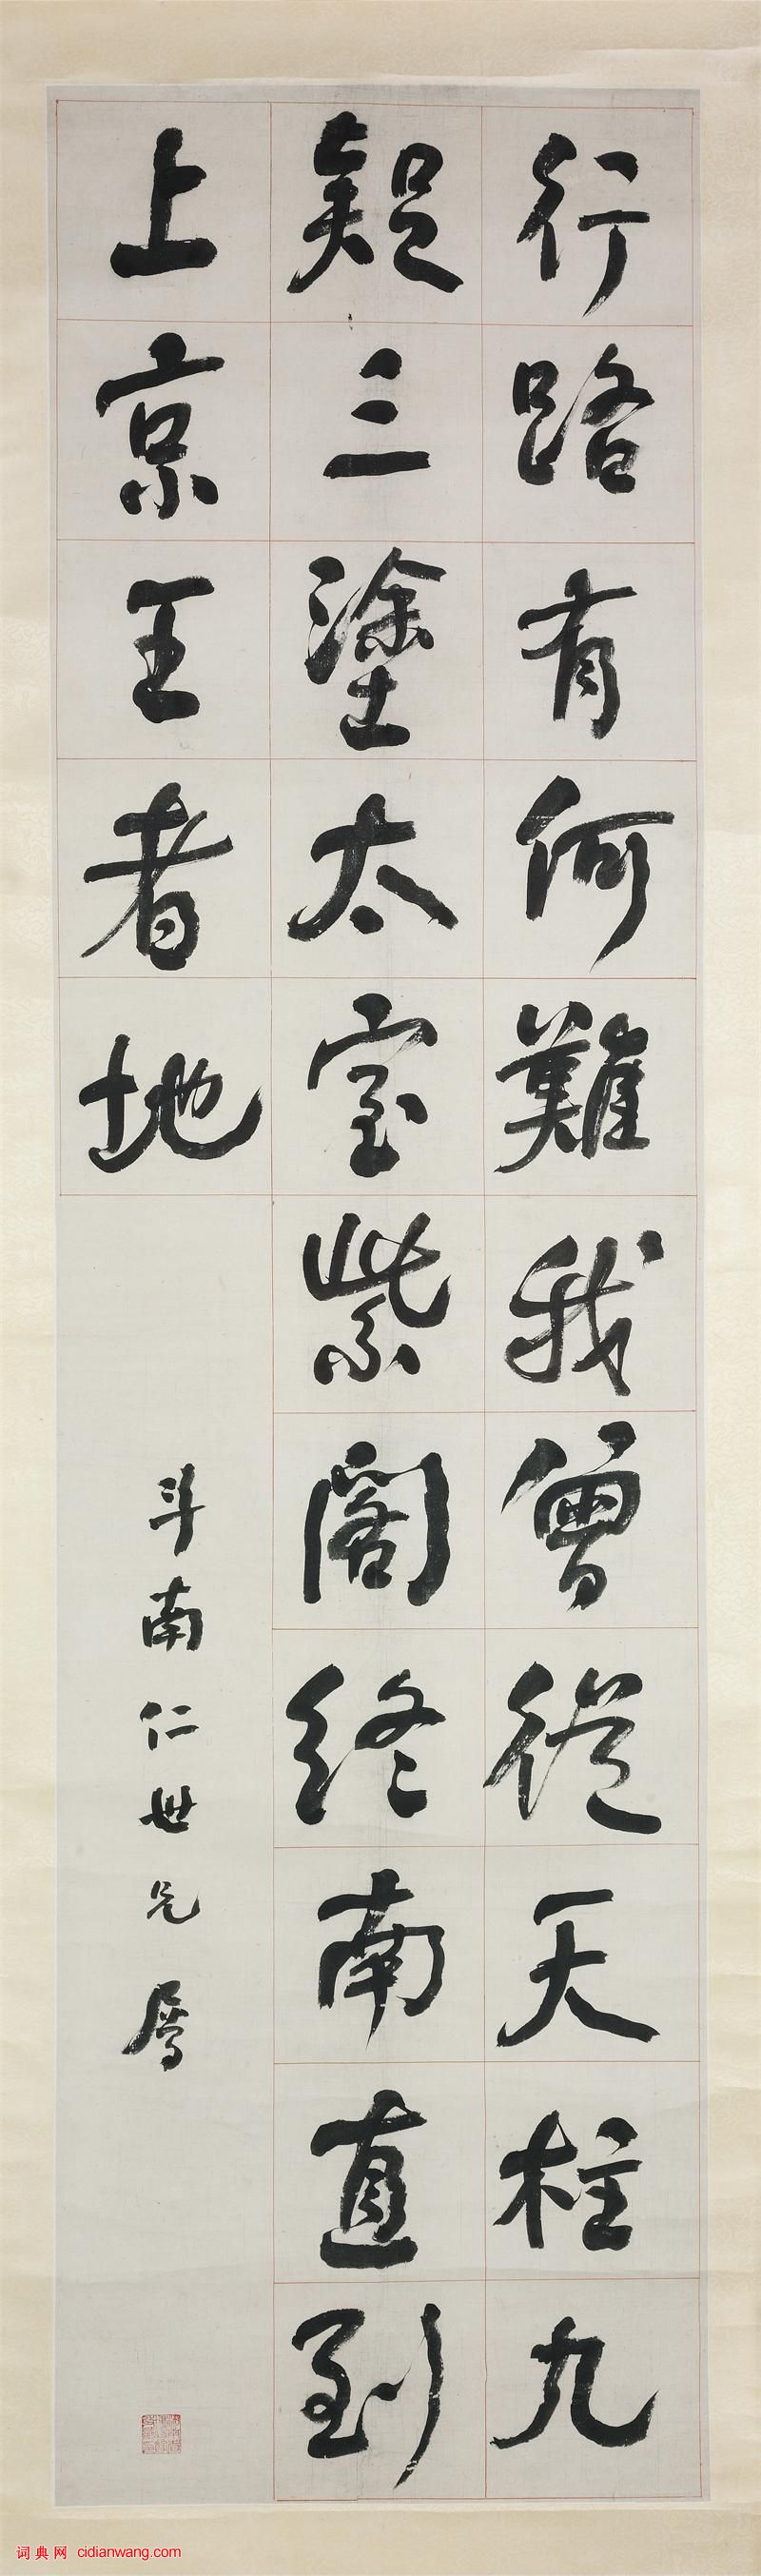 行路有何難我曾從天柱九
疑三塗太室紫閣終南直到
上京王者地
斗南仁世兄屬
词典网 cidianwang.com